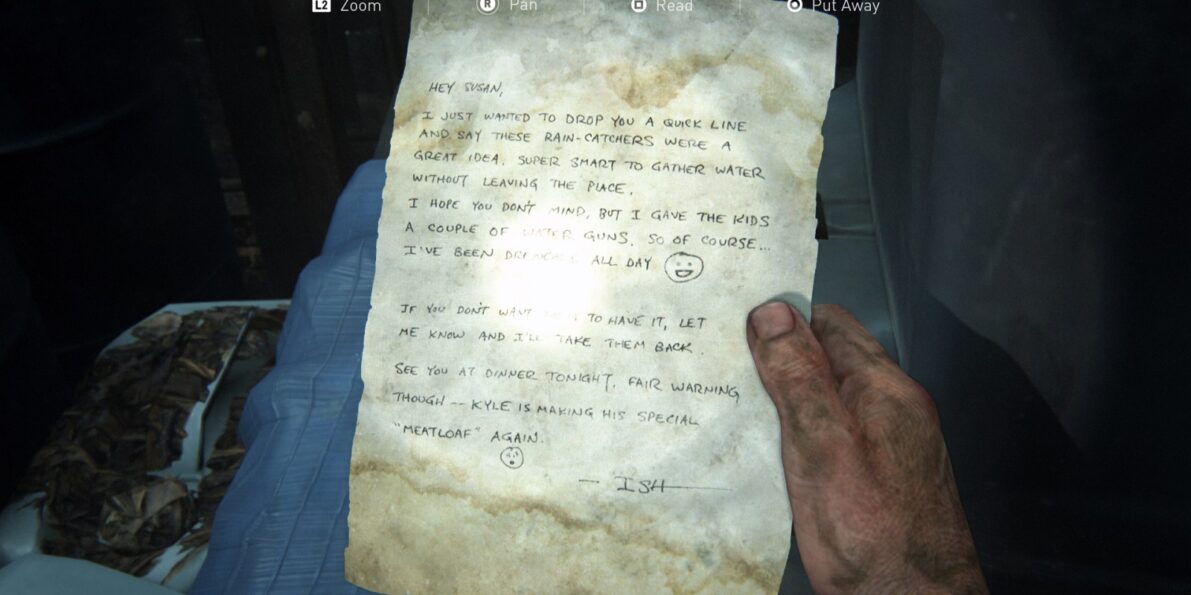 L2 Zoom R Pan Read Put Away
HEY SUSAN,
I JUST WANTED TO DROP YOU A QUICK LINE
AND SAY THESE RAIN-CATCHERS WERE A
GREAT IDEA. SUPER SMART TO GATHER WATER
WITHOUT LEAVING THE PLACE.
I HOPE YOU DON'T MIND, BUT I GAVE THE KIDS
A COUPLE OF WATER GUNS. SO OF COURSE...
I'VE BEEN DRENCHED ALL DAY
IF YOU DON'T WANT TO HAVE IT, LET
ME KNOW AND I'LL TAKE THEM BACK.
SEE YOU AT DINNER TONIGHT. FAIR WARNING
THOUGH -- KYLE IS MAKING HIS SPECIAL
"MEATLOAF" AGAIN.
- ISH